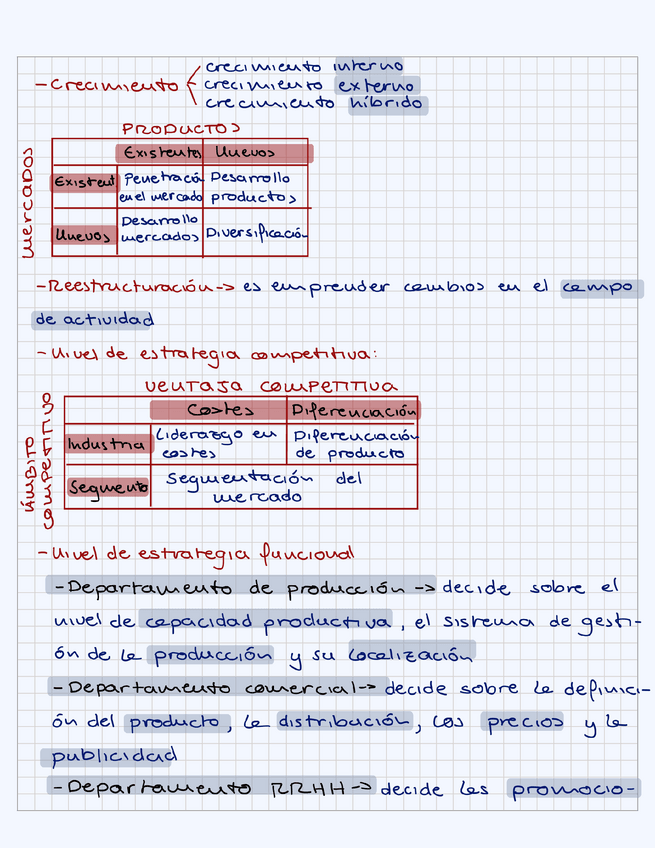 crecimiento interno
- Crecimiento < crecimiento externo
crecimiento híbrido
PRODUCTOS
Existentes Nuevos
MERCADOS
Existent Penetració Desarrollo
en el mercado productos
Desarrollo
Nuevos mercados Diversificación
- Reestructuración -> es emprender cambios en el campo
de actividad
- Nivel de estrategia competitiva:
VENTAJA COMPETITIVA
Costes Diferenciación
ÁMBITO COMPETITIVO
Industria Liderazgo en Diferenciación
costes de producto
Segmento Segmentación del
mercado
- Nivel de estrategia funcional
- Departamento de producción -> decide sobre el
nivel de capacidad productiva, el sistema de gesti-
ón de la producción y su localización
- Departamento comercial -> decide sobre la definici-
ón del producto, la distribución, los precios y la
publicidad
- Departamento RRHH -> decide las promocio-